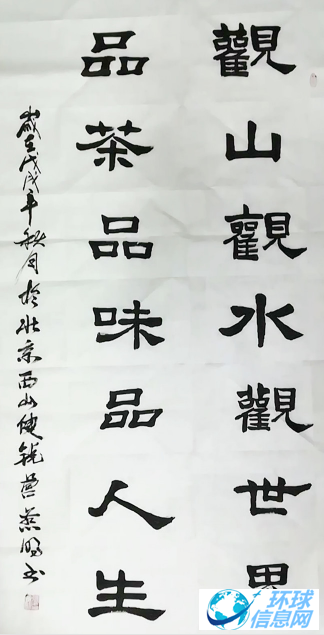 觀山觀水觀世界
品茶品味品人生
歲在戊戌年秋月於北京西山健銳營燕明書
环球
信息网